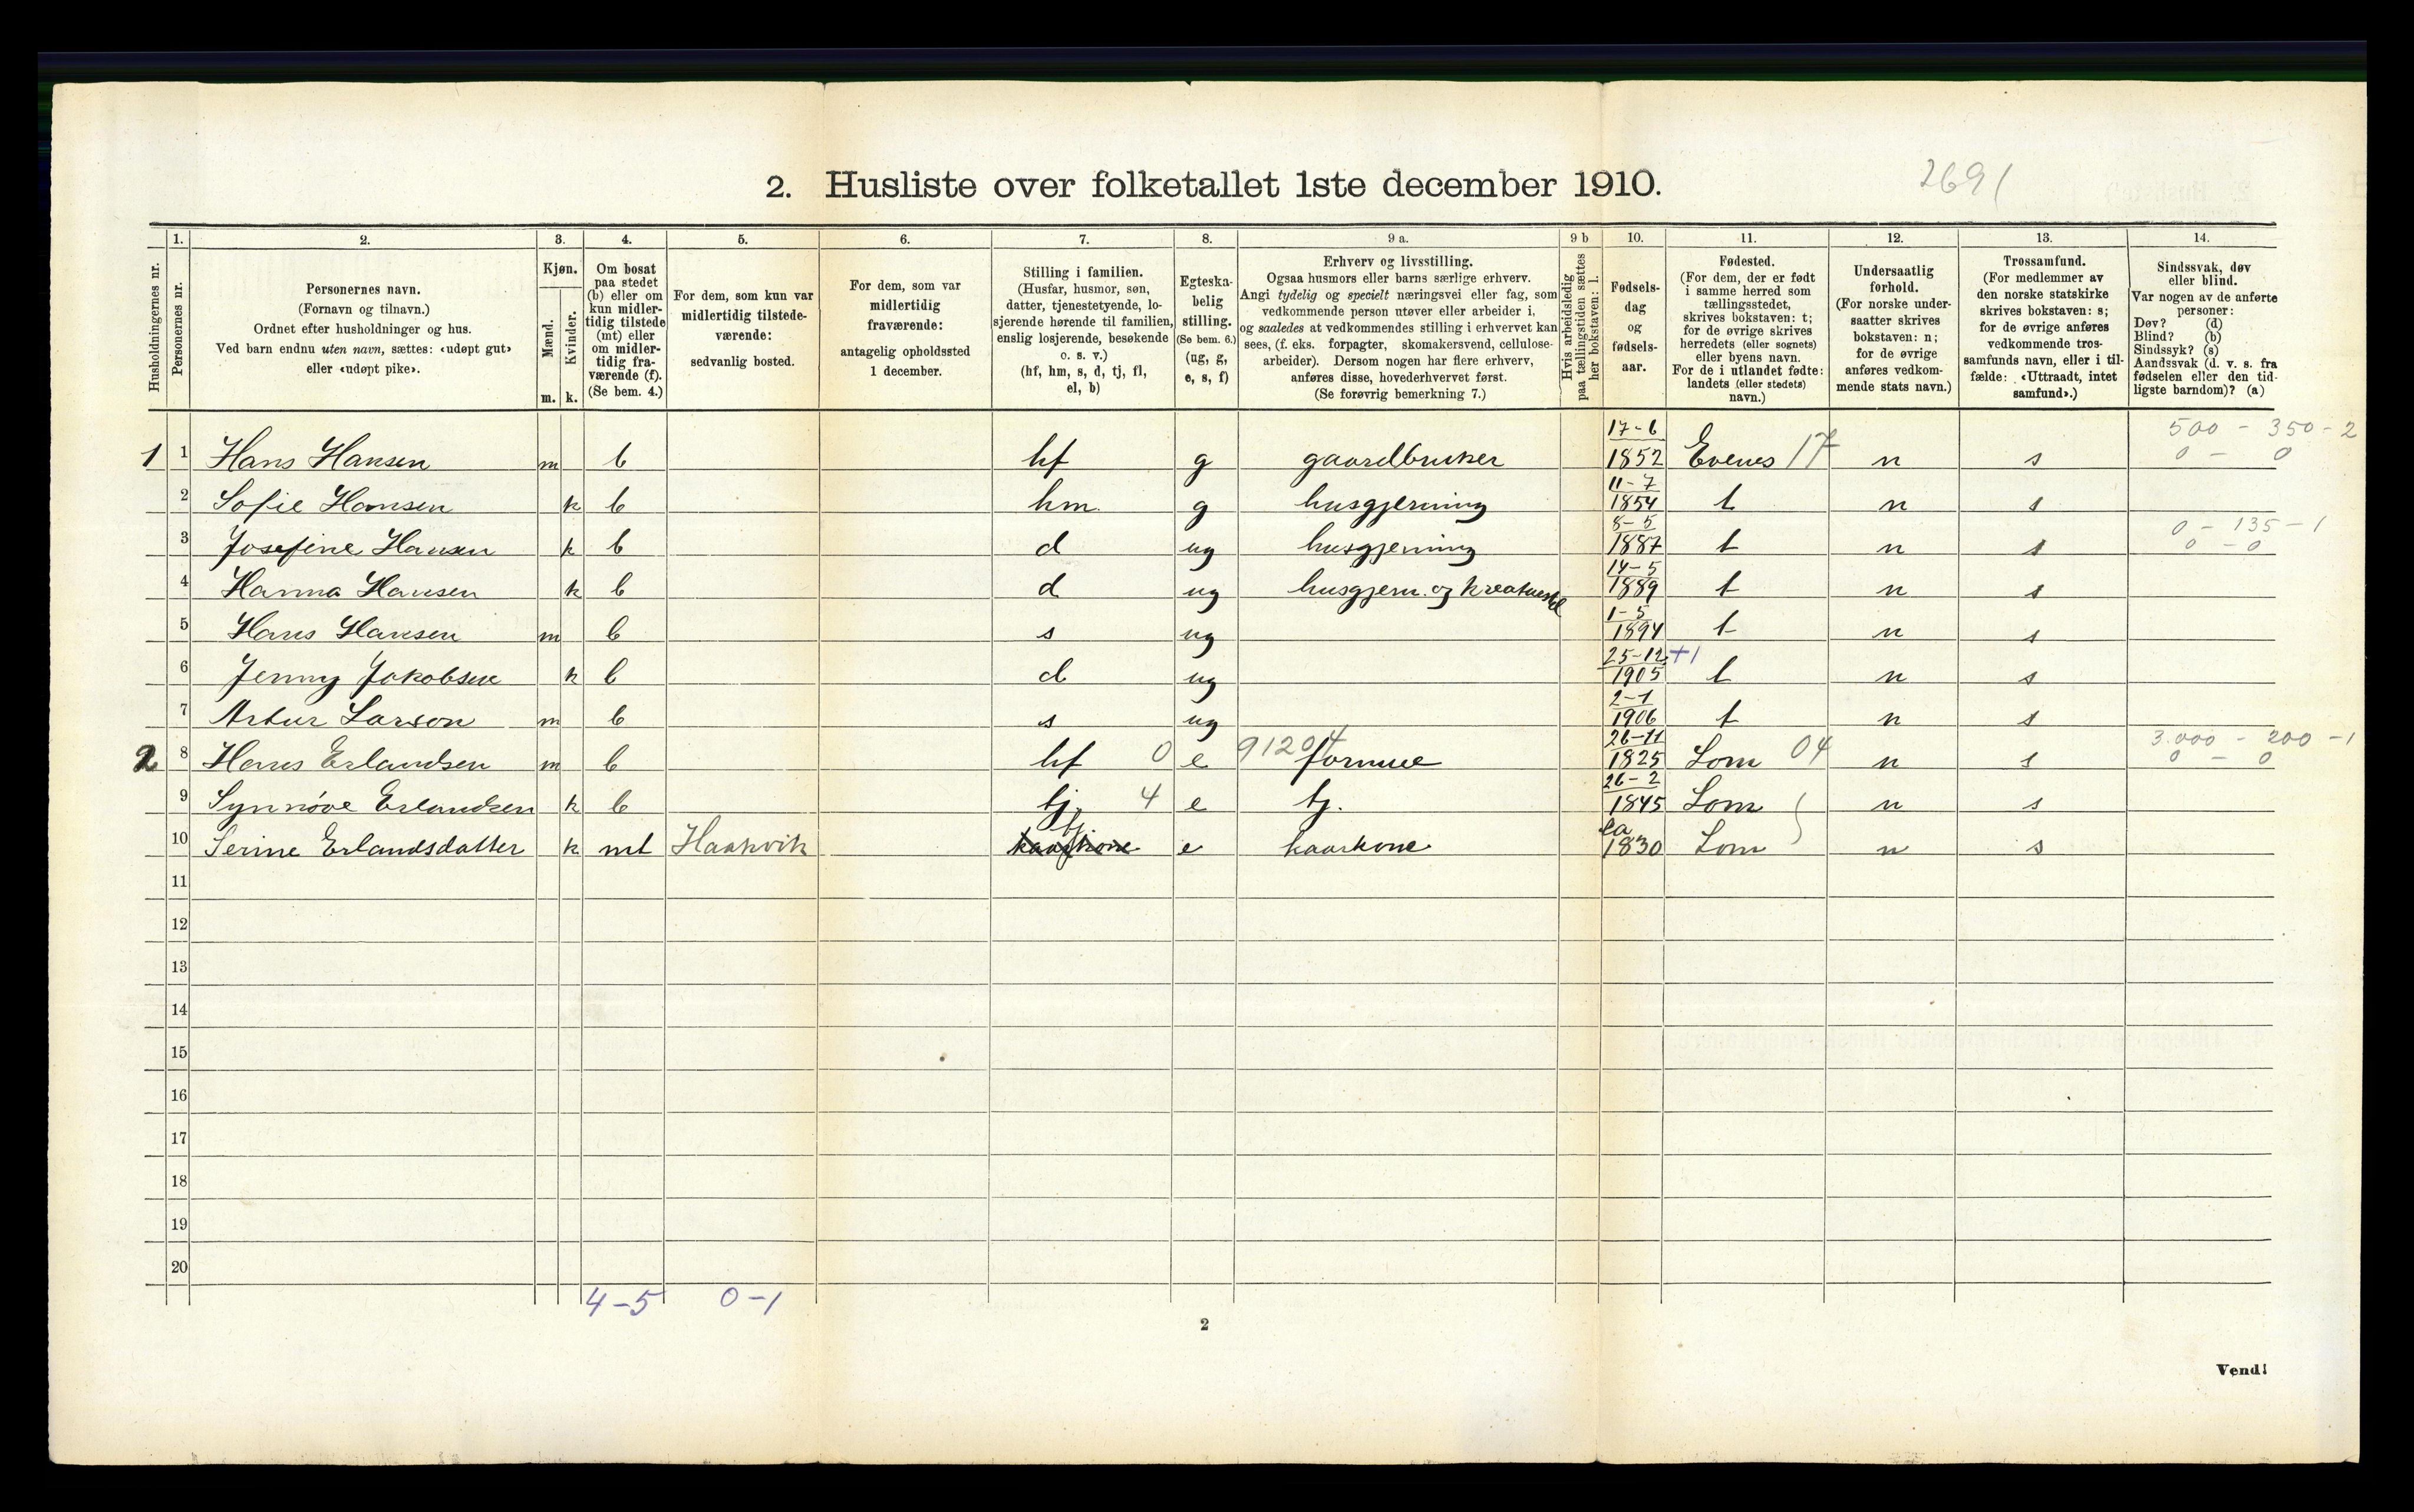 2. Husliste over folketallet 1ste december 1910.
2691
1. 2. 3. 4. 5. 6. 7. 8. 9 a. 9 b 10. 11. 12. 13. 14.
Husholdningernes nr.
Personernes nr.
Personernes navn.
(Fornavn og tilnavn.)
Ordnet efter husholdninger og hus.
Ved barn endnu uten navn, sættes: «udøpt gut»
eller «udøpt pike».
Kjøn.
Mænd.
Kvinder.
m. k.
Om bosat
paa stedet
(b) eller om
kun midler-
tidig tilstede
(mt) eller
om midler-
tidig fra-
værende (f).
(Se bem. 4.)
For dem, som kun var
midlertidig tilstede-
værende:
sedvanlig bosted.
For dem, som var
midlertidig
fraværende:
antagelig opholdssted
1 december.
Stilling i familien.
(Husfar, husmor, søn,
datter, tjenestetyende, lo-
sjerende hørende til familien,
enslig losjerende, besøkende
o. s. v.)
(hf, hm, s, d, tj, fl,
el, b)
Egteska-
belig
stilling.
(Se bem. 6.)
(ug, g,
e, s, f)
Erhverv og livsstilling.
Ogsaa husmors eller barns særlige erhverv.
Angi tydelig og specielt næringsvei eller fag, som
vedkommende person utøver eller arbeider i,
og saaledes at vedkommendes stilling i erhvervet kan
sees, (f. eks. forpagter, skomakersvend, cellulose-
arbeider). Dersom nogen har flere erhverv,
anføres disse, hovederhvervet først.
(Se forøvrig bemerkning 7.)
Hvis arbeidsledig
paa tællingstiden sættes
her bokstaven: l.
Fødsels-
dag
og
fødsels-
aar.
Fødested.
(For dem, der er født
i samme herred som
tællingsstedet,
skrives bokstaven: t;
for de øvrige skrives
herredets (eller sognets)
eller byens navn.
For de i utlandet fødte:
landets (eller stedets)
navn.)
Undersaatlig
forhold.
(For norske under-
saatter skrives
bokstaven: n;
for de øvrige
anføres vedkom-
mende stats navn.)
Trossamfund.
(For medlemmer av
den norske statskirke
skrives bokstaven: s;
for de øvrige anføres
vedkommende tros-
samfunds navn, eller i til-
fælde: «Uttraadt, intet
samfund».)
Sindssvak, døv
eller blind.
Var nogen av de anførte
personer:
Døv? (d)
Blind? (b)
Sindssyk? (s)
Aandssvak (d. v. s. fra
fødselen eller den tid-
ligste barndom)? (a)
17-6 500 - 350 - 2
1 1 Hans Hansen m b hf g gaardbruker 1852 Evenes 17 n s 0 - 0
11-7
2 Sofie Hansen k b hm. g husgjerning 1854 t n s
8-5 0 - 135 - 1
3 Josefine Hansen k b d ug husgjerning 1887 t n s 0 - 0
14-5
4 Hanna Hansen k b d ug husgjern. og kreaturstel 1889 t n s
1-5
5 Hans Hansen m b s ug 1894 t n s
25-12 +1
6 Jenny Jakobsen k b d ug 1905 t n s
2-1
7 Artur Larson m b s ug 1906 t n s
26-11 3.000 - 200 - 1
2 8 Hans Erlandsen m b hf 0 e 91204 formue 1825 Lom 04 n s 0 - 0
26-2
9 Synnøve Erlandsen k b tj. 4 e tj. 1845 Lom n s
tj ca
10 Serine Erlandsdatter k mt Haakvik kaarkone e kaarkone 1830 Lom n s
11
12
13
14
15
16
17
18
19
20
4-5 0-1
2
Vend!